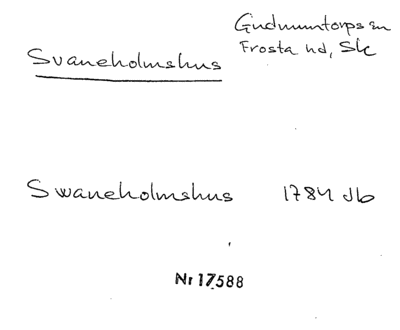 Gudmuntorps sn
Frosta hd, Sk
Svaneholmshus
Swaneholmshus 1784 Jb
Nr 17588